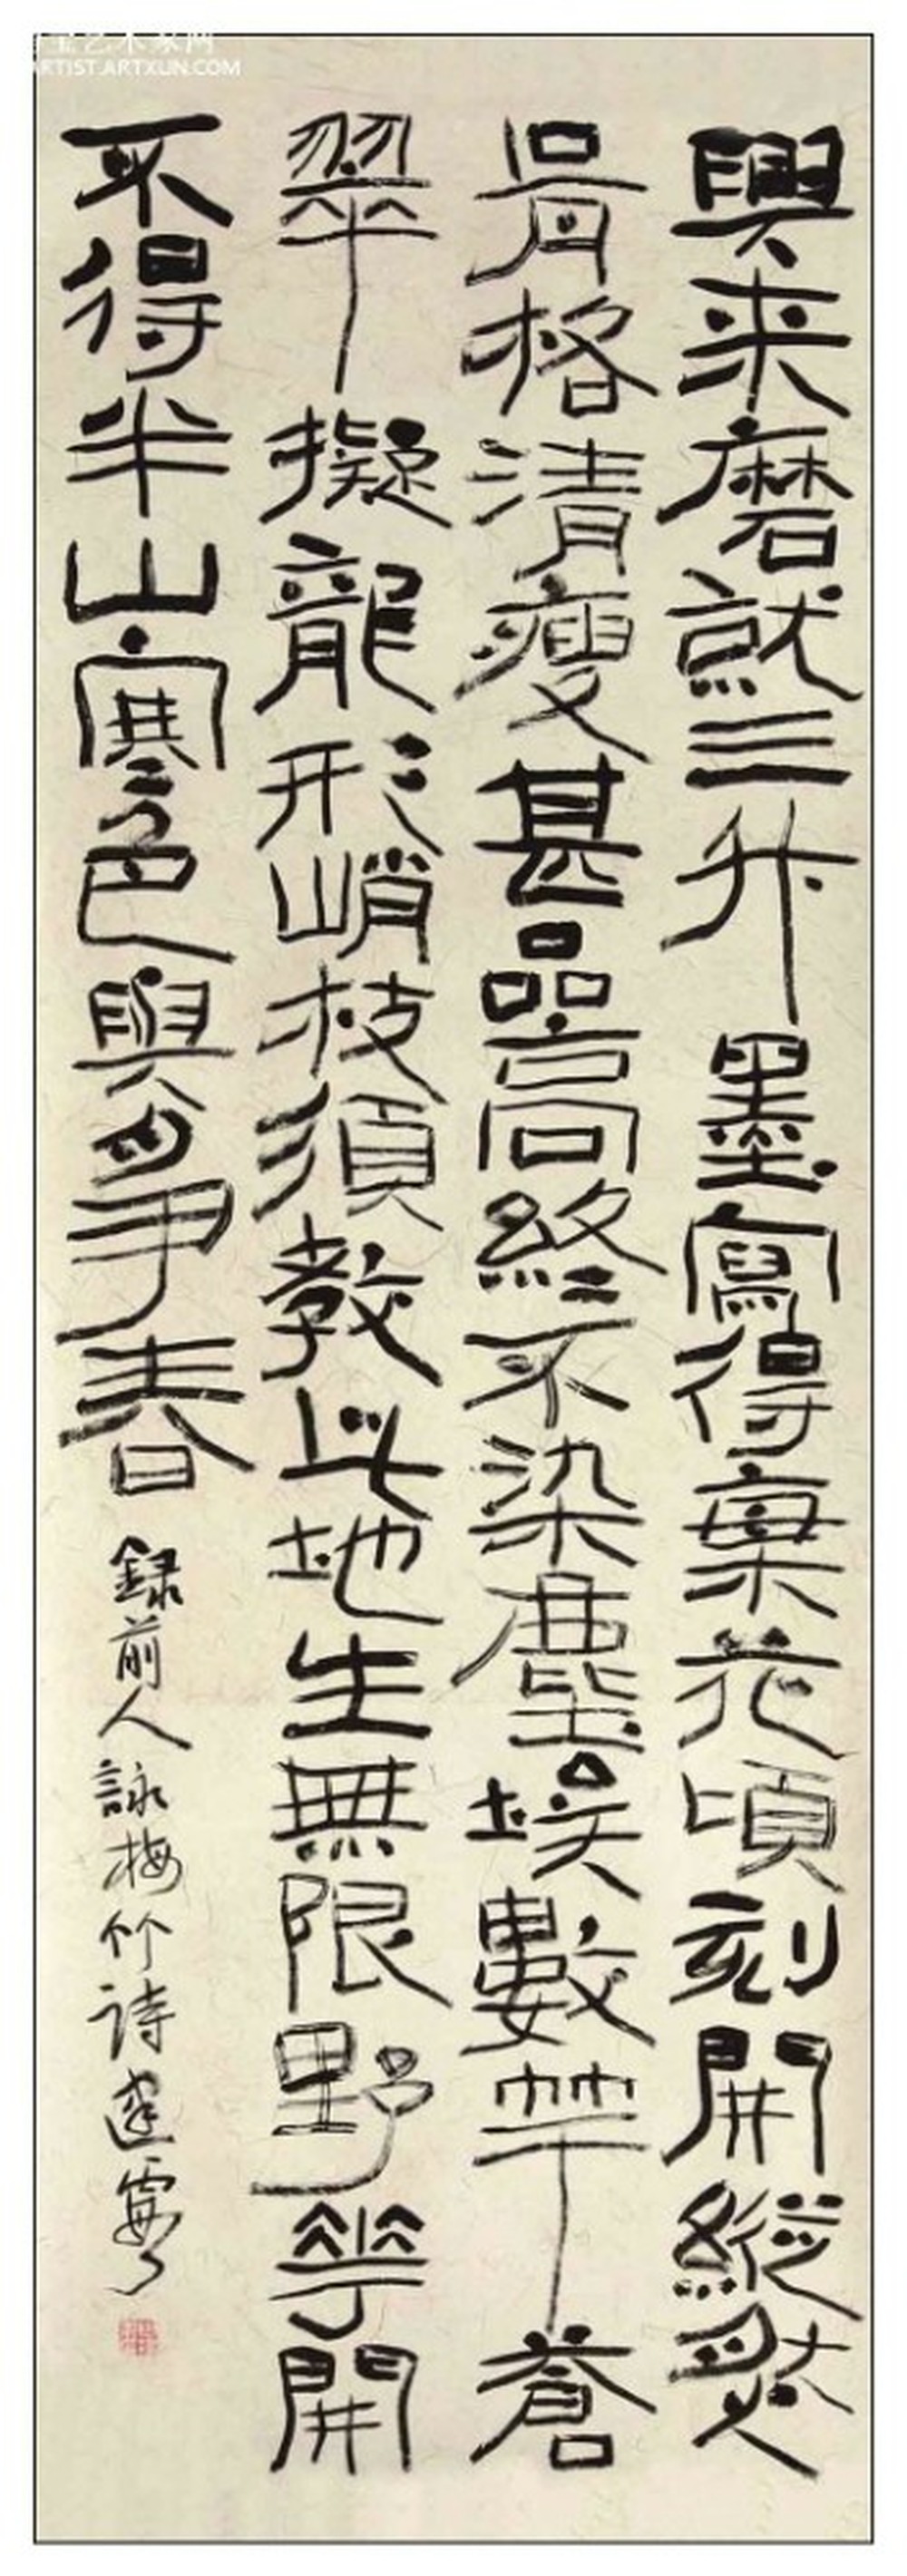 艺术家网
ARTIST.ARTXUN.COM
興来磨就三升墨寫得梅花頃刻開縱然
骨格清瘦甚品高終不染塵埃數竿蒼
翠擬龍形峭枝須教此地生無限野華開
不得半山寒色與爭春
録前人詠梅竹詩